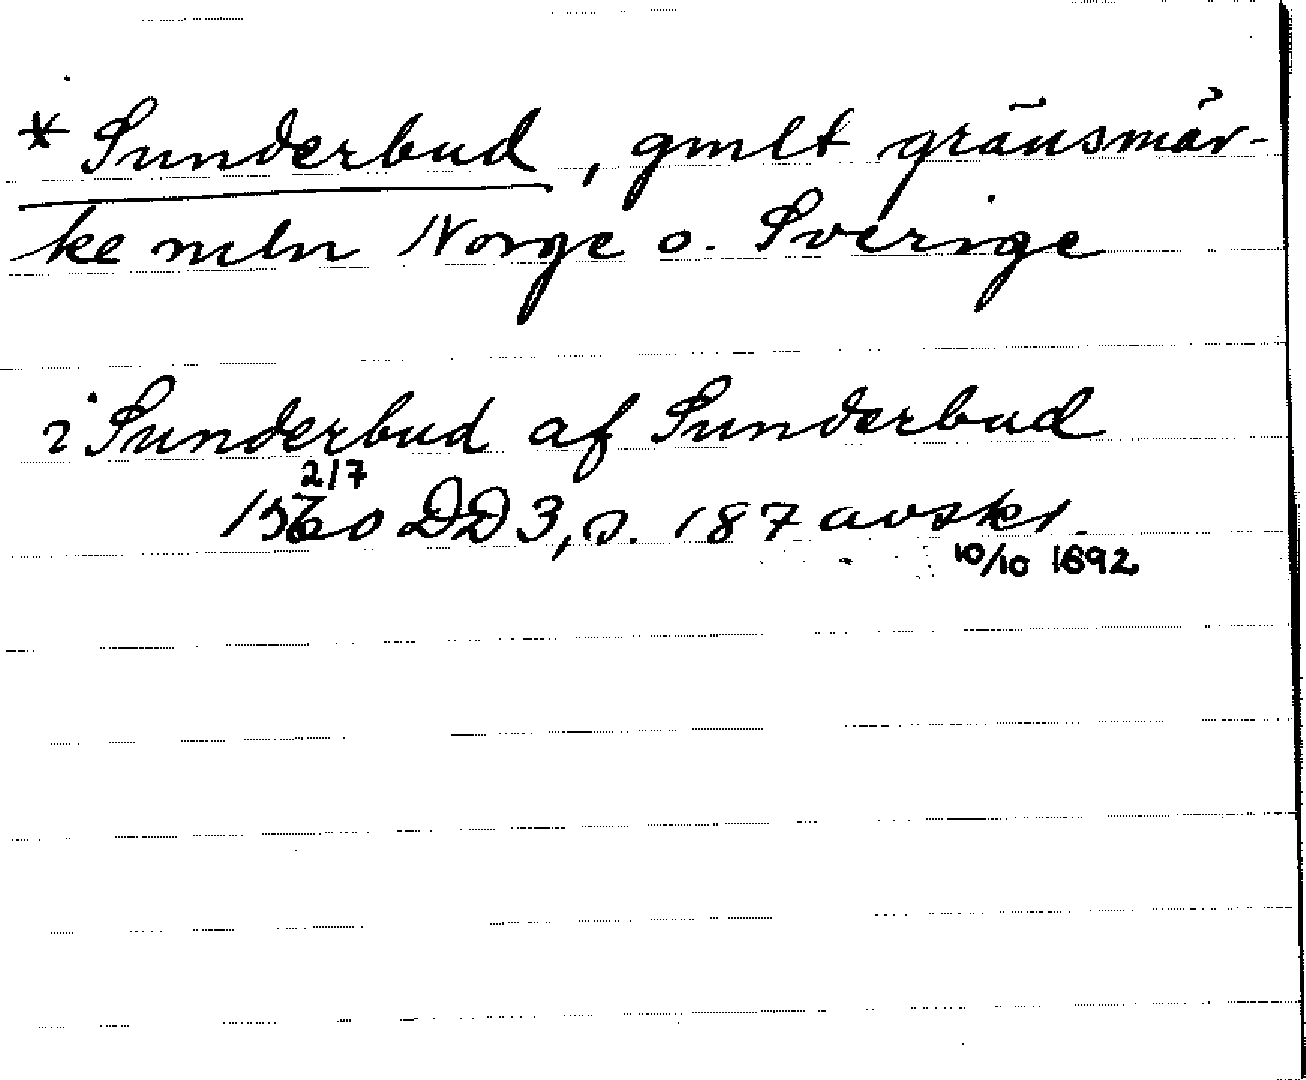 * Sunderbud, gmlt gränsmär-
ke mln Norge o. Sverige
i Sunderbud af Sunderbud
2/7
1560 DD 3, s. 187 avskr.
10/10 1692